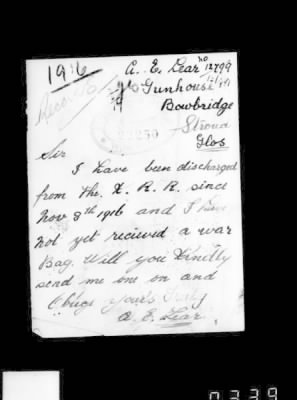 1916
A. E. Lear no 12799
Gunhouse
Bowbridge
Stroud
Glos
22250
Sir
I have been discharged
from the. K. R. R. since
Nov 8th 1916 and I have
not yet recieved a war
Bag. Will you Kindly
send me one on and
Oblige yours Truly
A. E. Lear
0339